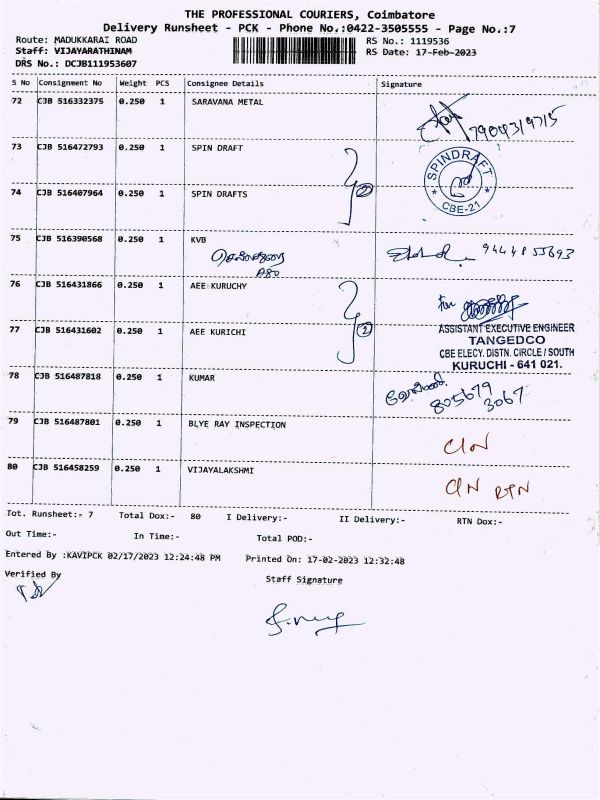 THE PROFESSIONAL COURIERS, Coimbatore
Delivery Runsheet - PCK - Phone No.:0422-3505555 - Page No.:7
Route: MADUKKARAI ROAD
RS No.: 1119536
Staff: VIJAYARATHINAM
RS Date: 17-Feb-2023
DRS No.: DCJB111953607
S No Consignment No Weight PCS Consignee Details Signature
72 CJB 516332375 0.250 1 SARAVANA METAL
73 CJB 516472793 0.250 1 SPIN DRAFT
SPINDRAFT
CBE-21
74 CJB 516407964 0.250 1 SPIN DRAFTS
2
75 CJB 516390568 0.250 1 KVB
76 CJB 516431866 0.250 1 AEE KURUCHY
for
77 CJB 516431602 0.250 1 AEE KURICHI
2
ASSISTANT EXECUTIVE ENGINEER
TANGEDCO
CBE ELECY. DISTN. CIRCLE / SOUTH
KURUCHI - 641 021.
78 CJB 516487818 0.250 1 KUMAR
805679
3067
79 CJB 516487801 0.250 1 BLYE RAY INSPECTION
C/N
80 CJB 516458259 0.250 1 VIJAYALAKSHMI
C/N RTN
Tot. Runsheet:- 7 Total Dox:- 80 I Delivery:- II Delivery:- RTN Dox:-
Out Time:- In Time:- Total POD:-
Entered By :KAVIPCK 02/17/2023 12:24:48 PM Printed On: 17-02-2023 12:32:48
Verified By
Staff Signature